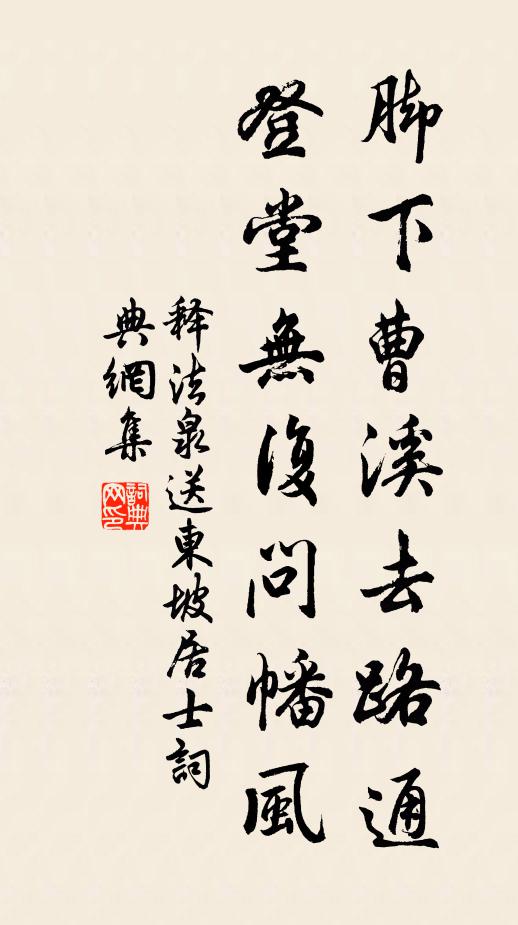 脚下曹溪去路通
登堂無復問幡風
释法泉送東坡居士詞
典網集
詞典
网印